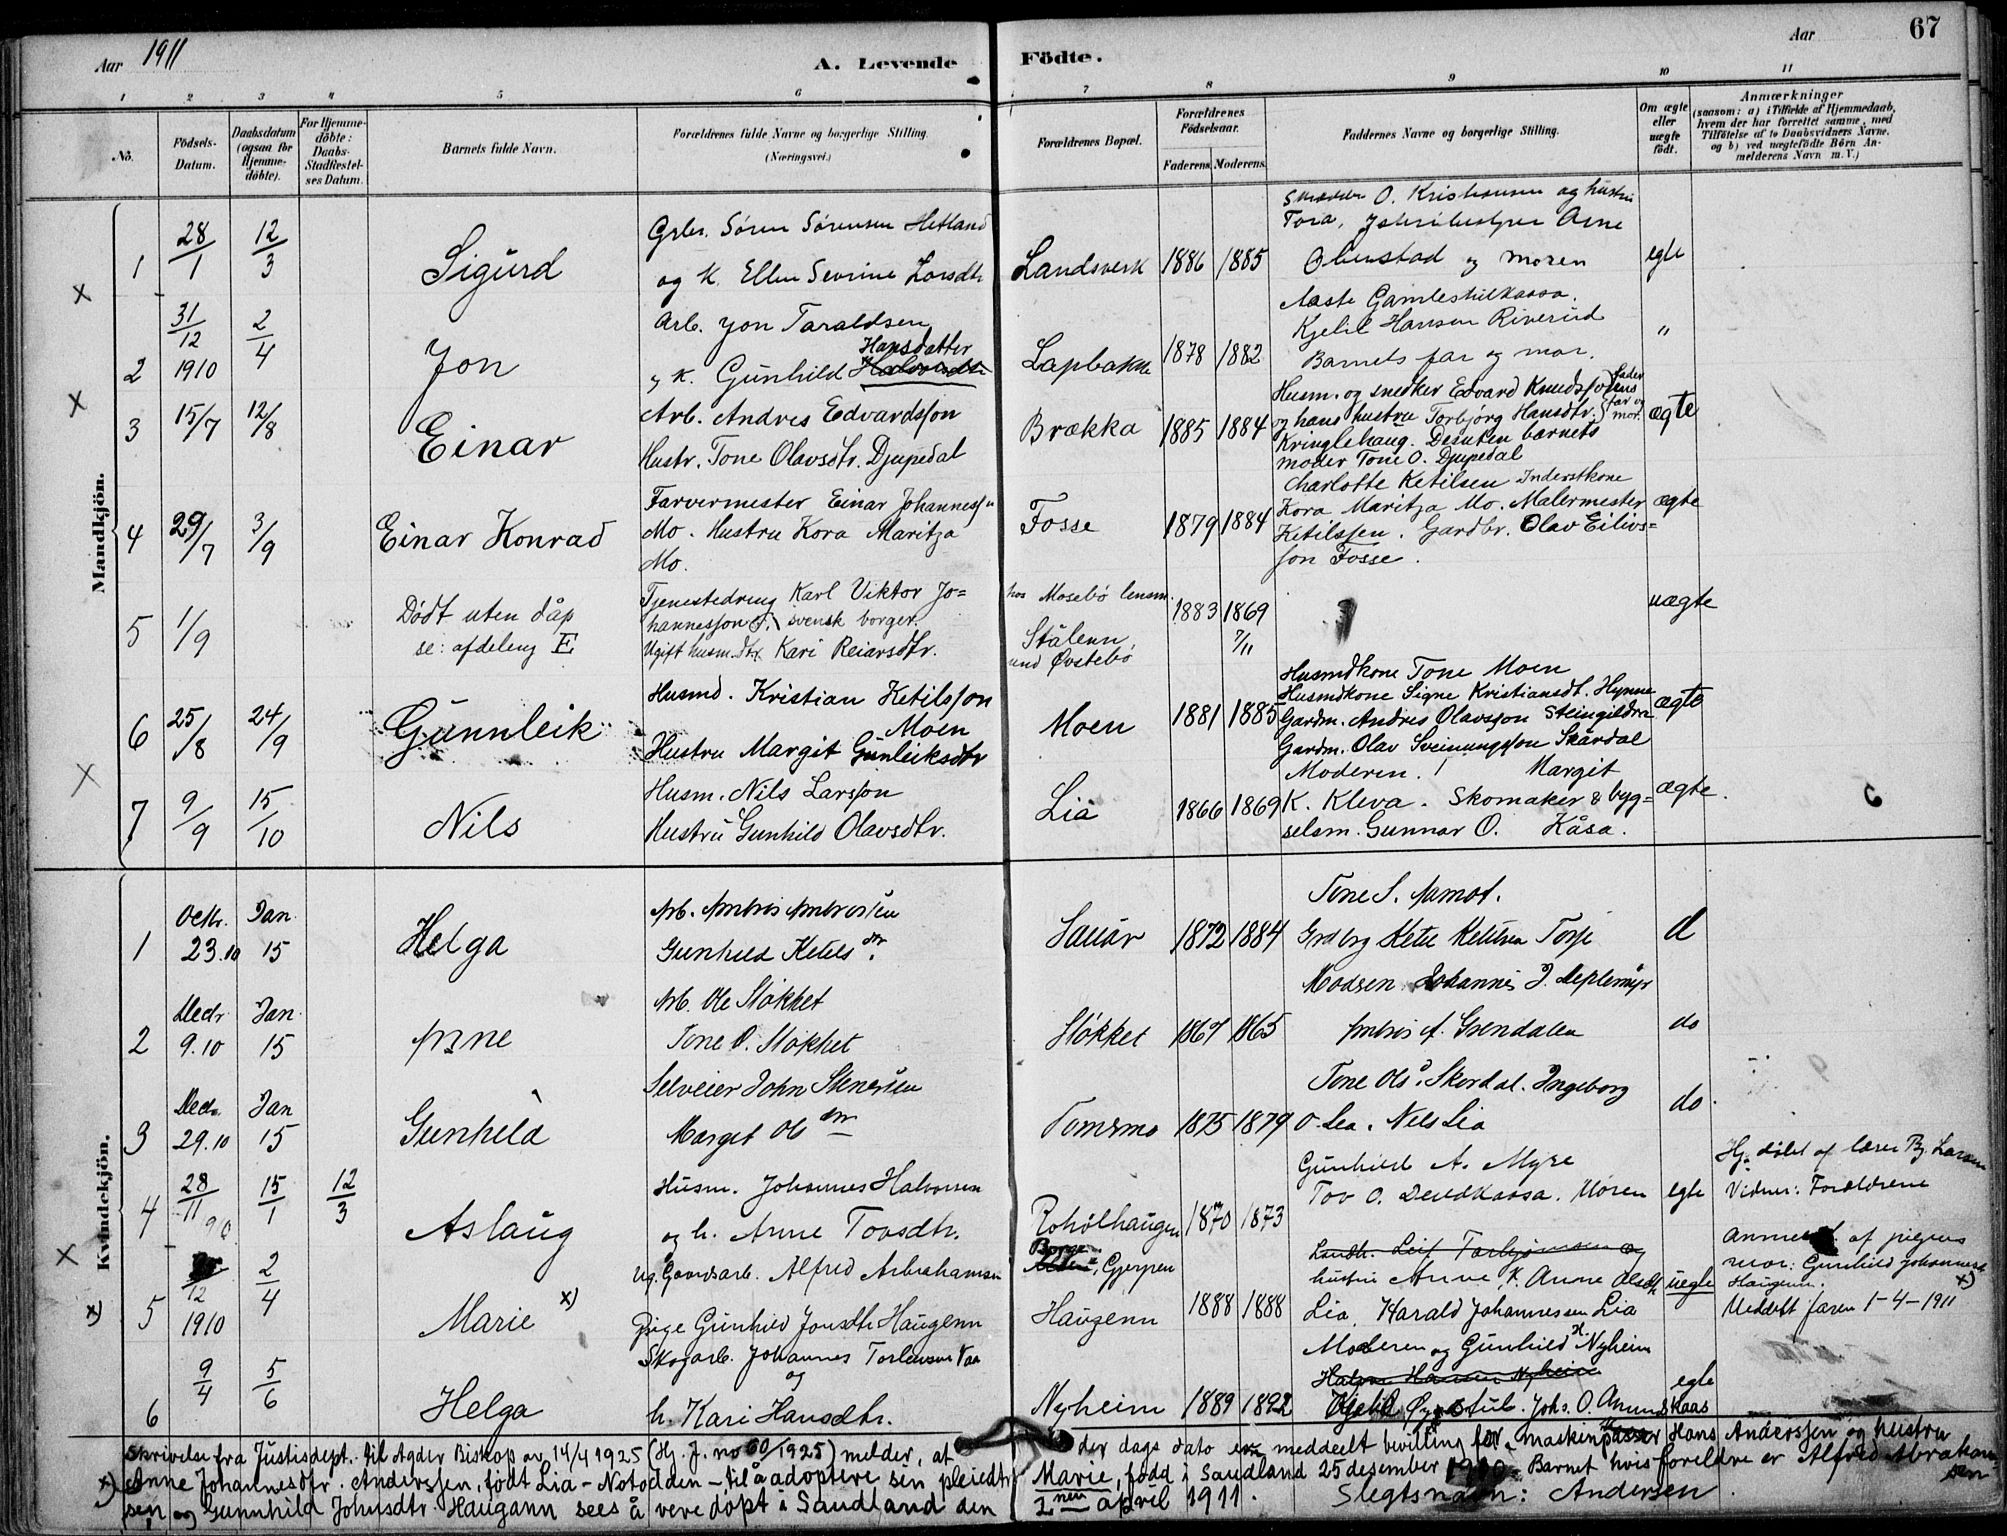 Aar 1911
A. Levende
Födte.
Aar
67
1 2 3 4 5 6 7 8 9 10 11
No.
Födsels-Datum.
Daabsdatum (ogsaa for Hjemme-döbte).
For Hjemme-döbte: Daabs-Stadfæstel-ses Datum.
Barnets fulde Navn.
Forældrenes fulde Navne og borgerlige Stilling.
(Næringsvei.)
Forældrenes Bopæl.
Forældrenes Födselsaar.
Faderens. Moderens.
Faddernes Navne og borgerlige Stilling.
Om ægte eller uægte födt.
Anmærkninger
(saasom: a) i Tilfælde af Hjemmedaab, hvem der har forrettet samme, med Tilföielse af to Daabsvidners Navne. og b) ved uægtefödte Börn An-melderens Navn m. V.)
Mandkjön.
1 28/1 12/3 Sigurd
Grbr. Søren Sørensen Hetland
og K. Ellen Sevrine Larsdtr
Landsverk 1886 1885
O. Kristiansen og hustru
Tora, Arne
og moren
egte
2 31/12 1910 2/4 Jon
Arb. Jon Taraldsen
Hansdatter
og K. Gunhild Halvorsdtr
Lapbakka 1878 1882
Aaste Gamlestulkaasa.
Kjetil Hansen Riverud
Barnets far og mor.
"
3 15/7 12/8 Einar
Arb. Andres Edvardsson
Hustr. Tone Olavsdtr. Djupedal
Brækka 1885 1884
Husm. og snedker Edvard Knudsson
og hans hustru Torbjørg Hansdtr. Faderens far og mor.
Kringlehaug. Desuten barnets
moder Tone O. Djupedal
ægte
4 29/7 3/9 Einar Konrad
Farvermester Einar Johanness
Mo. Hustru Kora Maritza
Mo.
Fosse 1879 1884
Charlotte Ketilsen Inderstkone
Kora Maritza Mo. Malermester
Ketilssen. Gardbr. Olav Eilivs=
son Fosse.
ægte
5 1/9 Dødt uten dåp
se: afdeling E
Tjenestedreng Karl Viktor Jo=
hannesson svensk borger.
Ugift husm.dtr Kari Reiarsdtr.
hos Mosebø lensm.
Stålenn
und Øvstebø
1883 1869
7/11
uægte
6 25/8 24/9 Gunnleik
Husmd. Kristian Ketilsson
Moen
Hustru Margit Gunleiksdtr
Moen 1881 1885
Husmdkone Tone Moen
Husmdkone Signe Kristiansdt. Hynne
Gardm. Andres Olavsson Steingildra
Gardm. Olav Sveinungsson Skårdal
Moderen.
ægte
7 9/9 15/10 Nils
Husm. Nils Larsson
Hustru Gunhild Olavsdtr.
Lia 1866 1869
Margit
K. Kleva. Skomaker & byg=
selsm. Gunnar O. Kåsa.
ægte.
Kvindekjön.
1 Octbr. 23.10 Jan. 15 Helga
Arb. Ambros Ambrosen
Gunhild Ketils dtr.
Sauar 1872 1884
Tone S. Aamot.
Torje
Madsen Johannes J.
2 Decbr 9.10 Jan. 15 Anne
Arb. Ole Støkket
Tone O. Støkket
Støkket 1867 1865
Ambros A. Grendalen
do
3 Decbr. 29.10 Jan 15 Gunhild
Selveier John Stenersen
Marget Ols dtr
Tomsmo 1875 1879
Tone Ols. Skordal. Ingeborg
O. Lea. Nils Lia
do
4 28/11 15/1 12/3 Aslaug
Husm. Johannes Halvorsen
og h. Anne Tovsdtr.
Roholhaugen 1870 1873
Gunhild A. Myre
Tov O. Moren
egte
Hj. døbt af lærer Bj. Larsen
Vidner: Forældrene
5 12 1910 2/4 Marie x)
Ug. Gaardsarb. Alfred Abrahamsen
Pige Gunhild Jonsdtr Haugenn
Borge, Gjerpen
Haugenn 1888 1888
Leif Torbjørnsen og
hustru Anne K. Anne Olsdtr
Lia, Harald Johannessen Lia
uegte
af pigens
mor: Gunhild Johannesd
Haugenn. x)
Meddelt faren 1-4-1911
6 9/4 5/6 Helga
Skogarb. Johannes Torleivsen Vaa
og
h. Kari Hansdtr.
Nyheim 1889 1892
Moderen og Gunhild H. Nyheim
Halvor Hansen Nyheim
Kjetil Øygistul. Johs. O. Amundskaas
egte
x) Skrivelse fra Justisdept. til Agder Biskop av 14/4 1925 (Hj. J. no 60/1925) melder, at der dags dato er meddeelt bevilling for maskinpasser Hans Anderssen og hustru
Anne Johannesdtr. Anderssen, født Lia - Notodden - til å adoptere sin pleiedtr Marie, fødd i Saudland 25 desember 1910. Barnet hvis foreldre er Alfred Abraham
sen og Gunnhild Johnsdtr. Haugann sees å vere døpt i Saudland den 2nen april 1911. Slegtsnavn: Andersen.